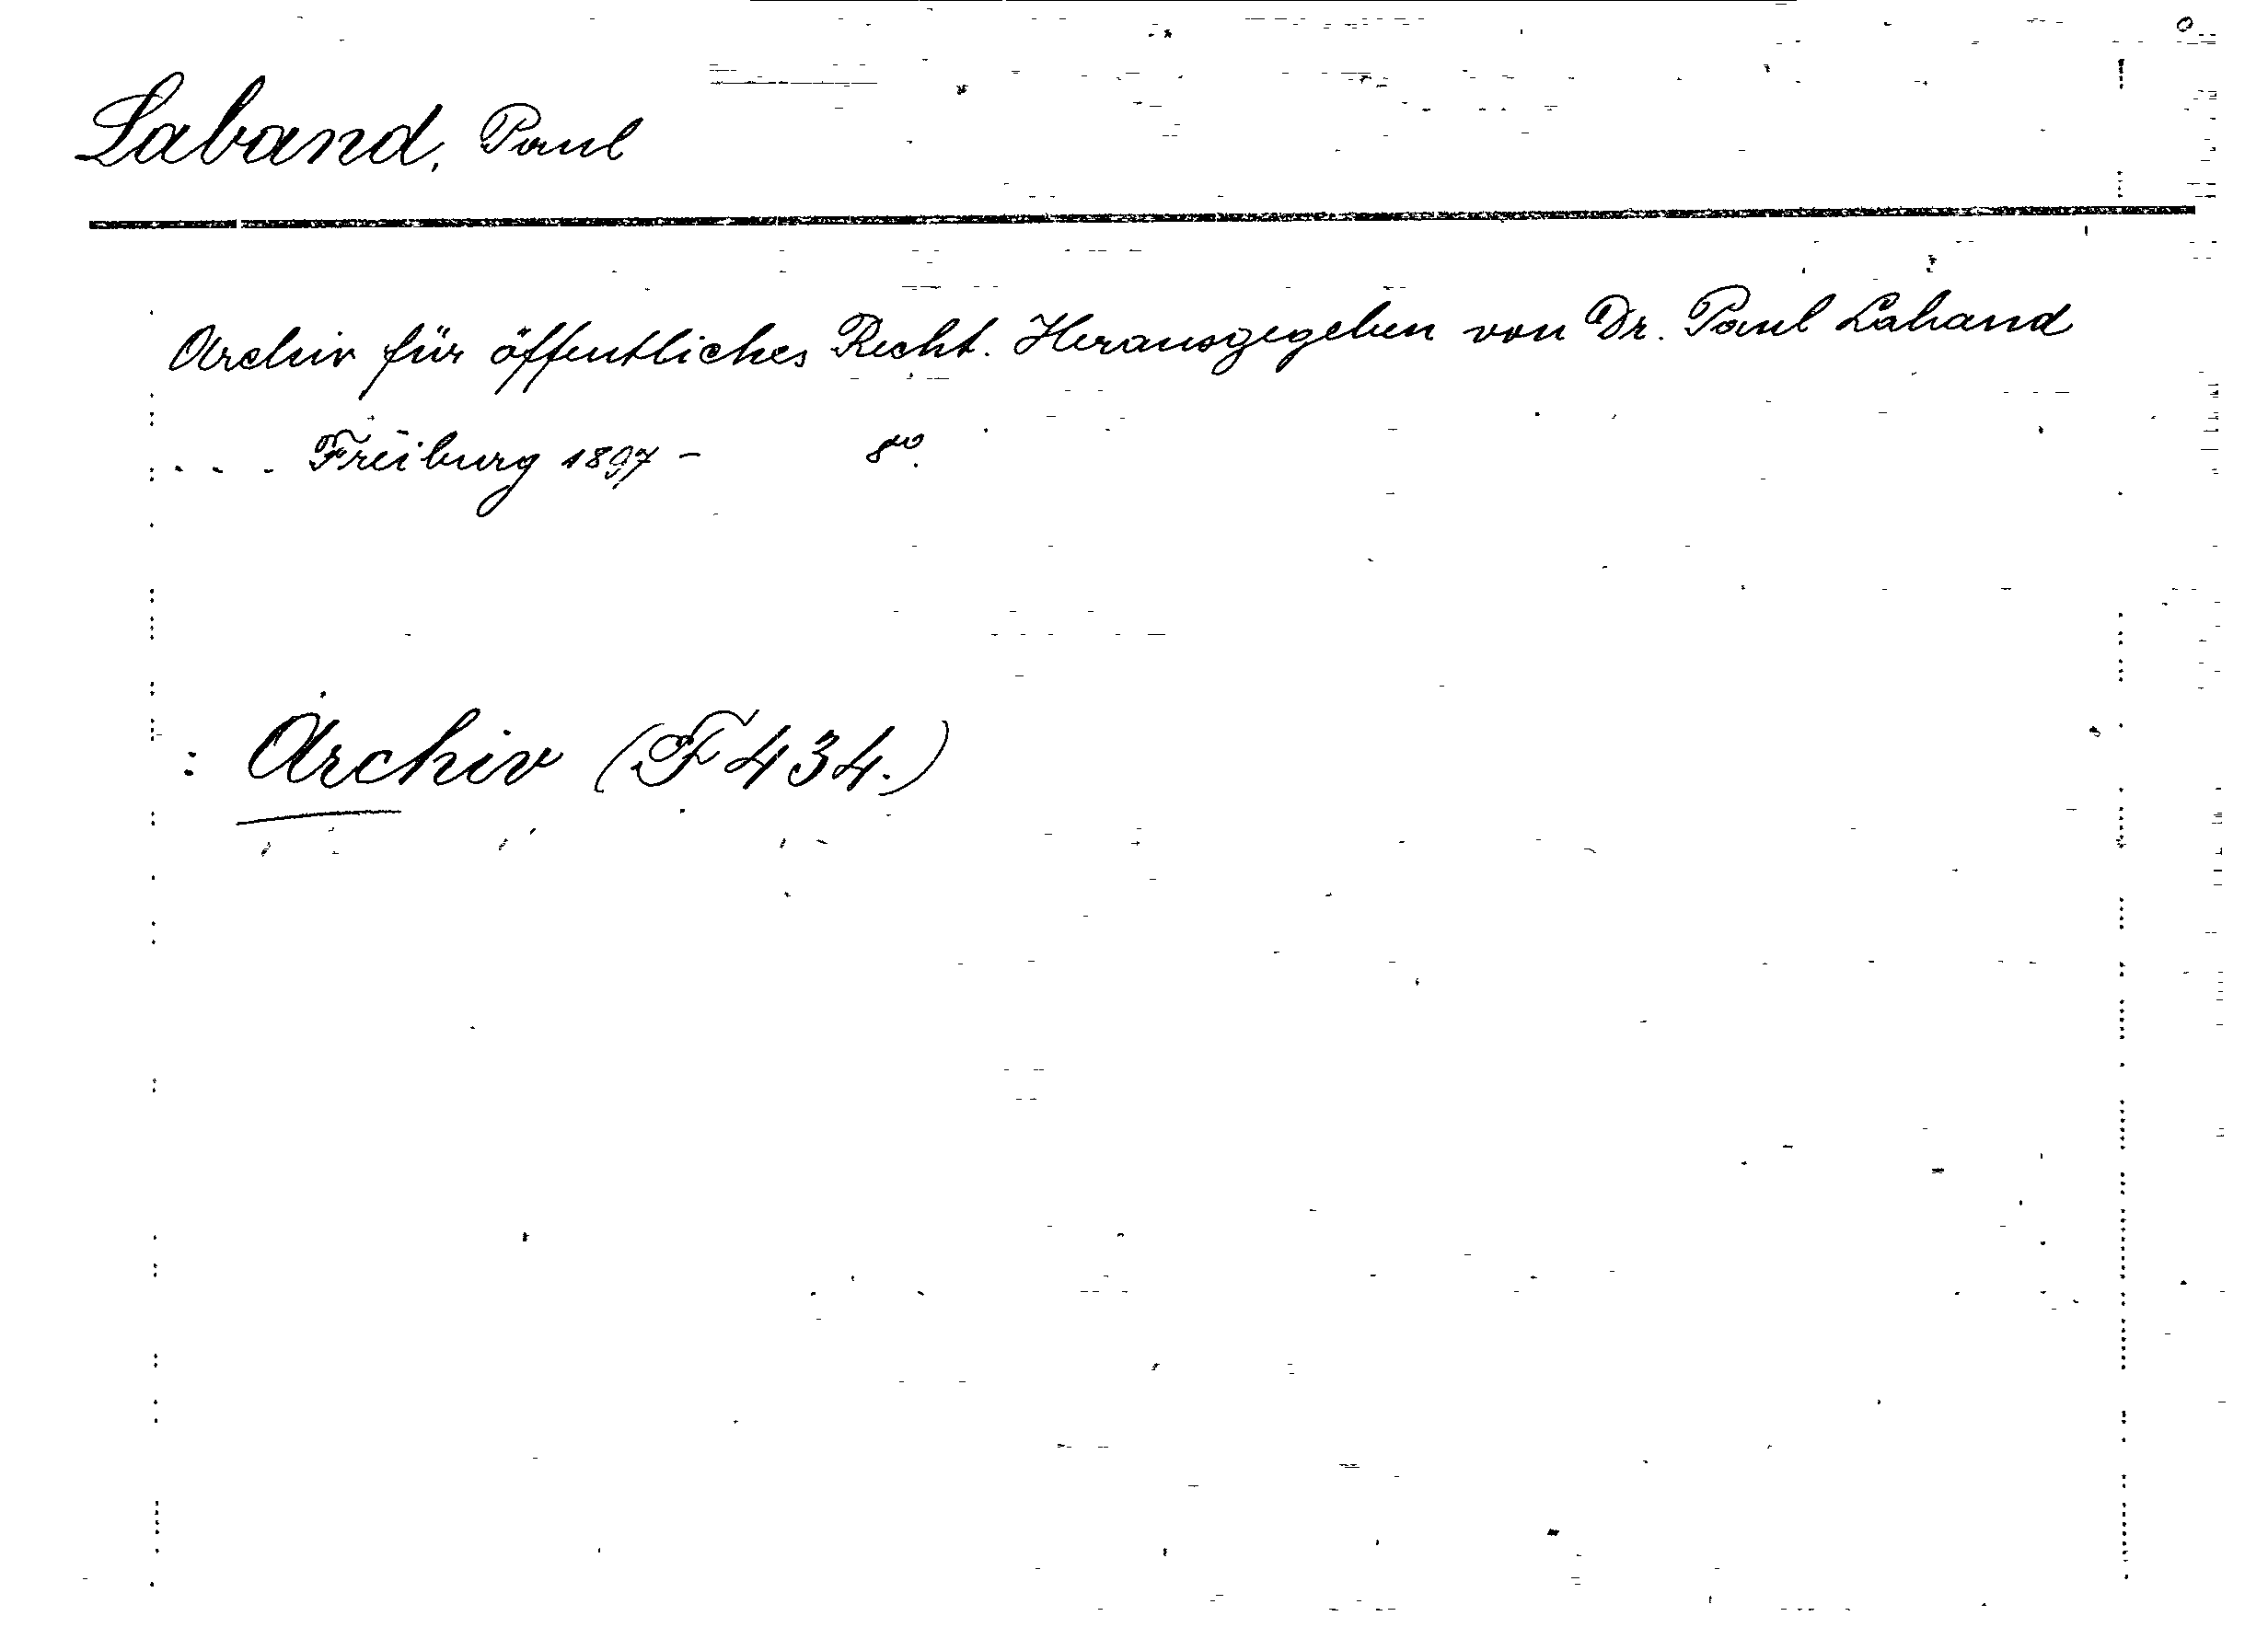 Laband, Paul
Archiv für öffentliches Recht. Herausgegeben von Dr. Paul Laband
Freiburg 1897 - 8vo.
: Archiv (F 434.)